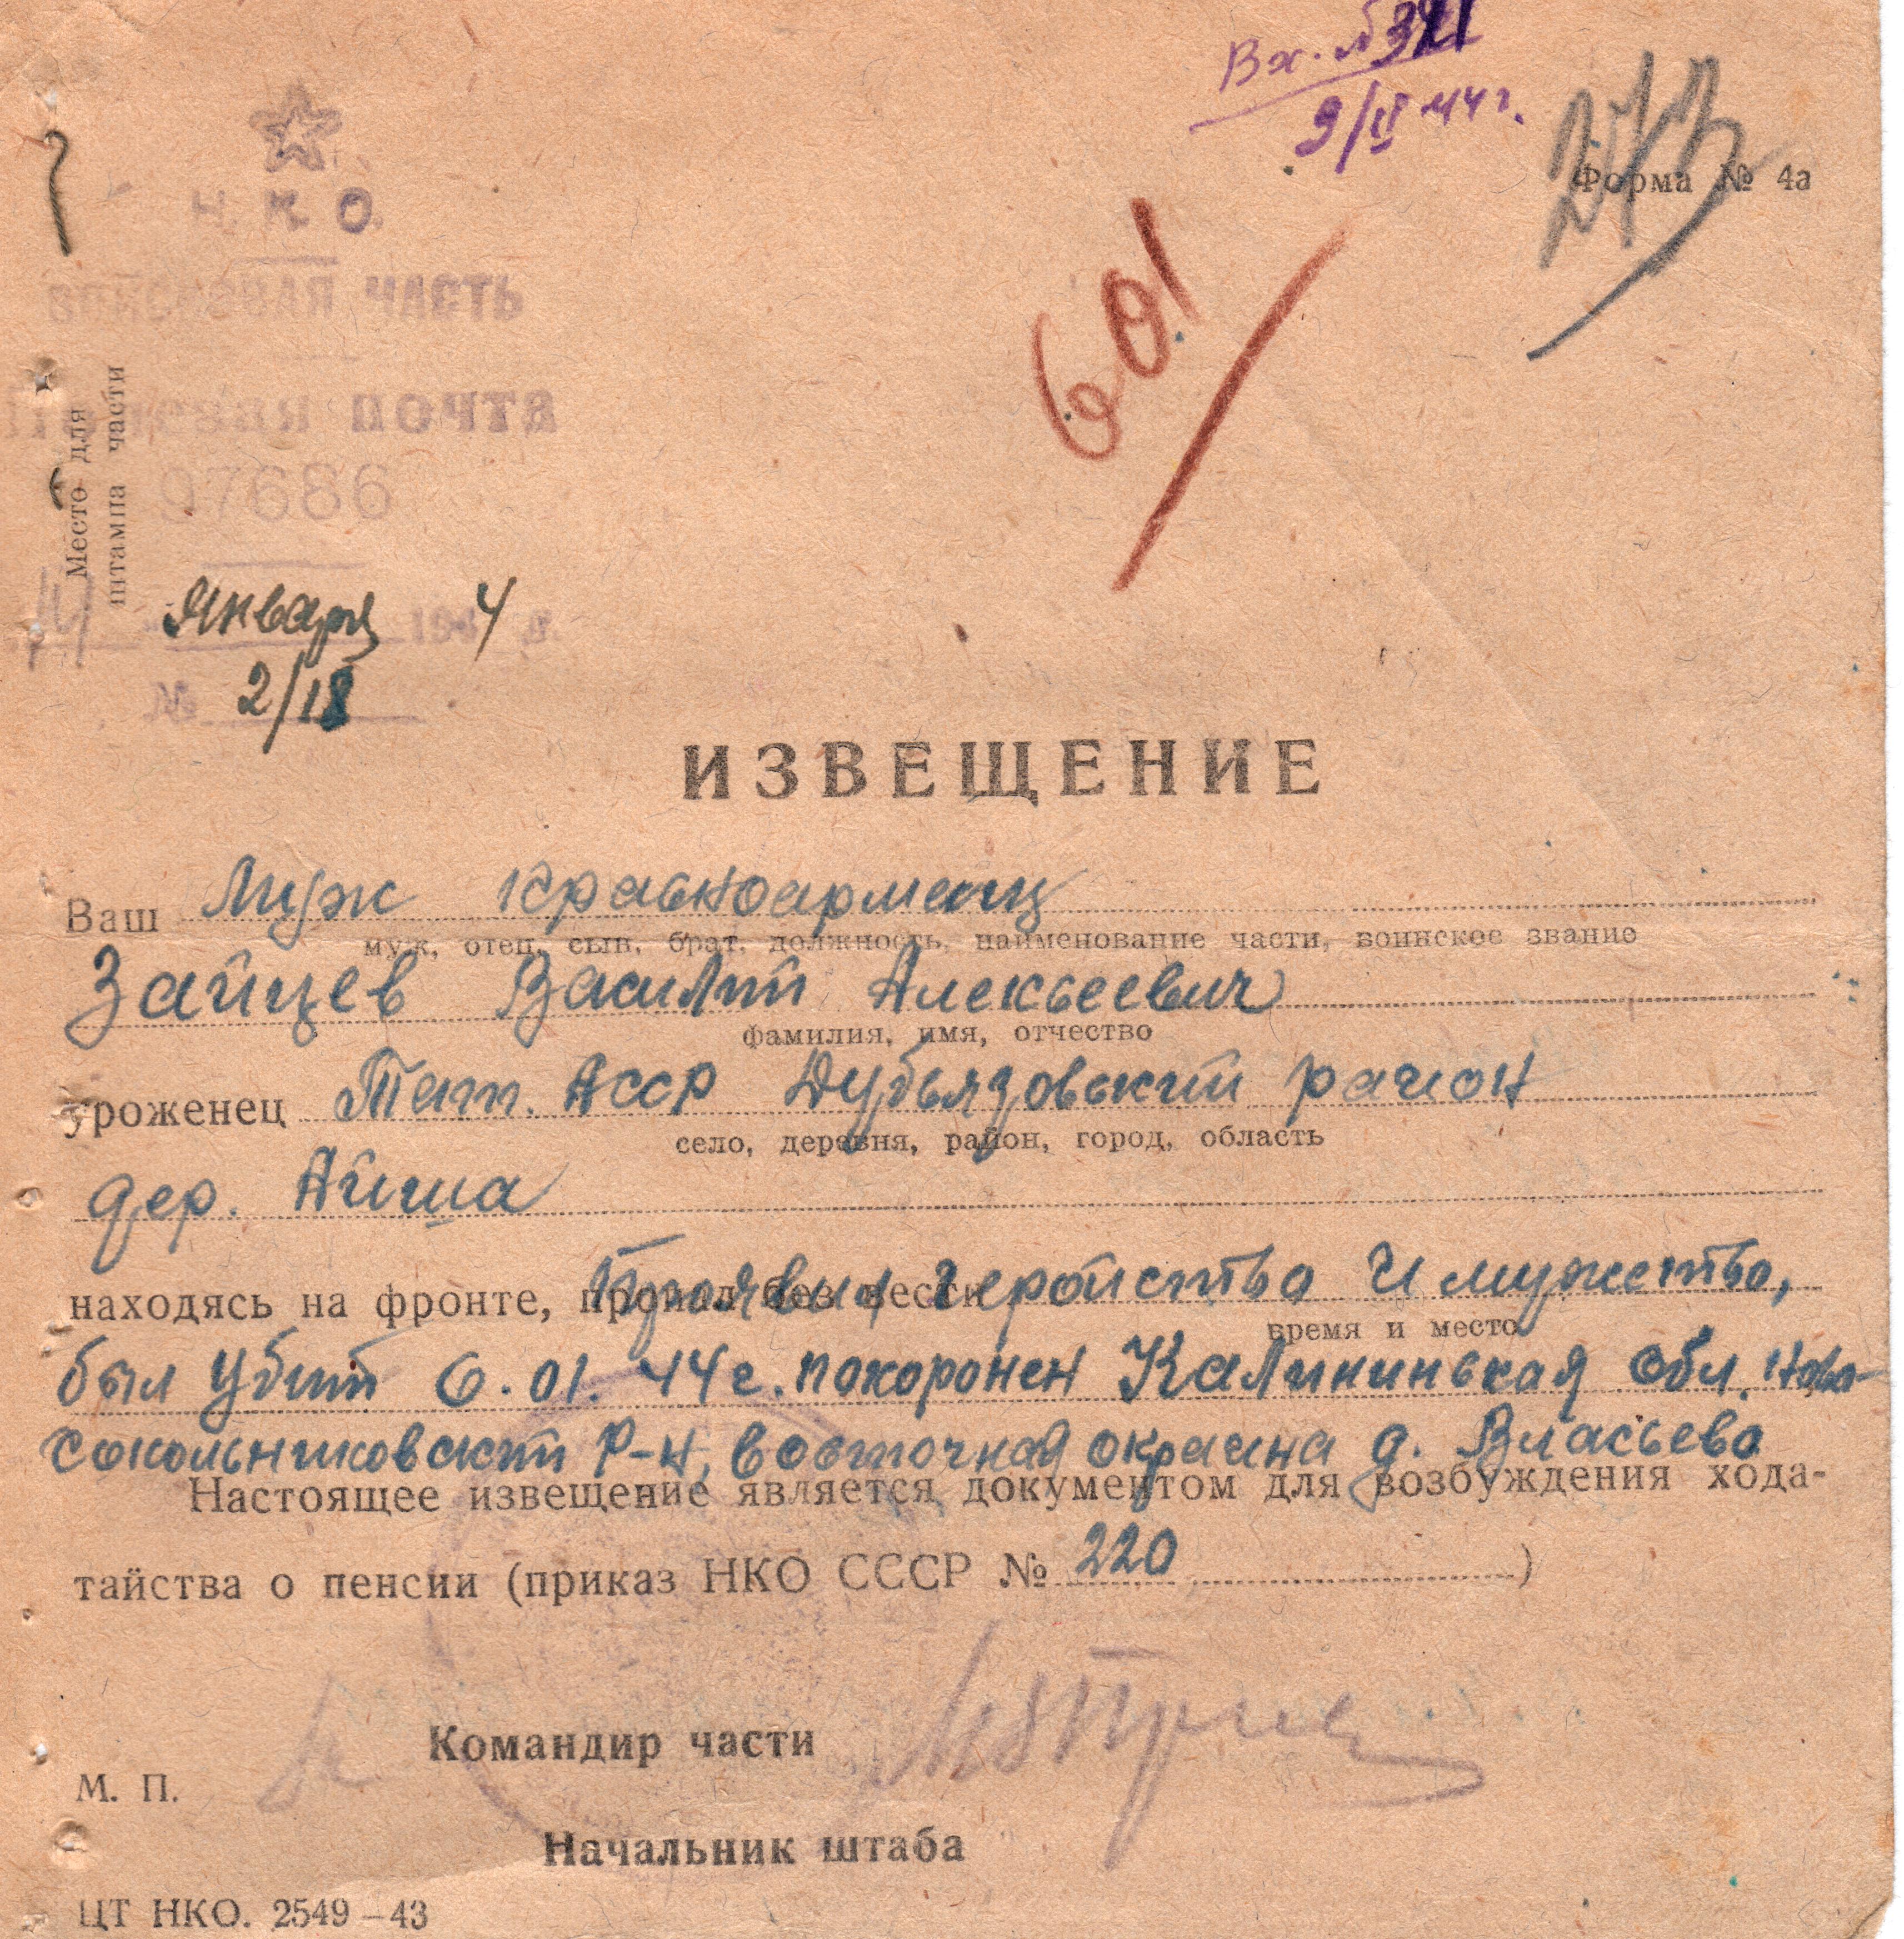 Вх. №
9/II 44 г.
Форма № 4а
Н. К. О.
ВОЙСКОВАЯ ЧАСТЬ
Полевая почта
97686
Место для
штампа части
января 1944 г.
№ 2/18
601
ИЗВЕЩЕНИЕ
Ваш Муж красноармеец
муж, отец, сын, брат, должность, наименование части, воинское звание
Зайцев Василий Алексеевич
фамилия, имя, отчество
уроженец Тат. АССР Дубьязовский район
село, деревня, район, город, область
дер. Айша
находясь на фронте, пропал без вести Проявил геройства и мужество,
время и место
был убит 6.01.44 г. похоронен Калининская обл. Ново-
сокольниковский р-н, восточная окраина д. Власьево
Настоящее извещение является документом для возбуждения хода-
тайства о пенсии (приказ НКО СССР № 220 )
Командир части
М. П.
Начальник штаба
ЦТ НКО. 2549–43